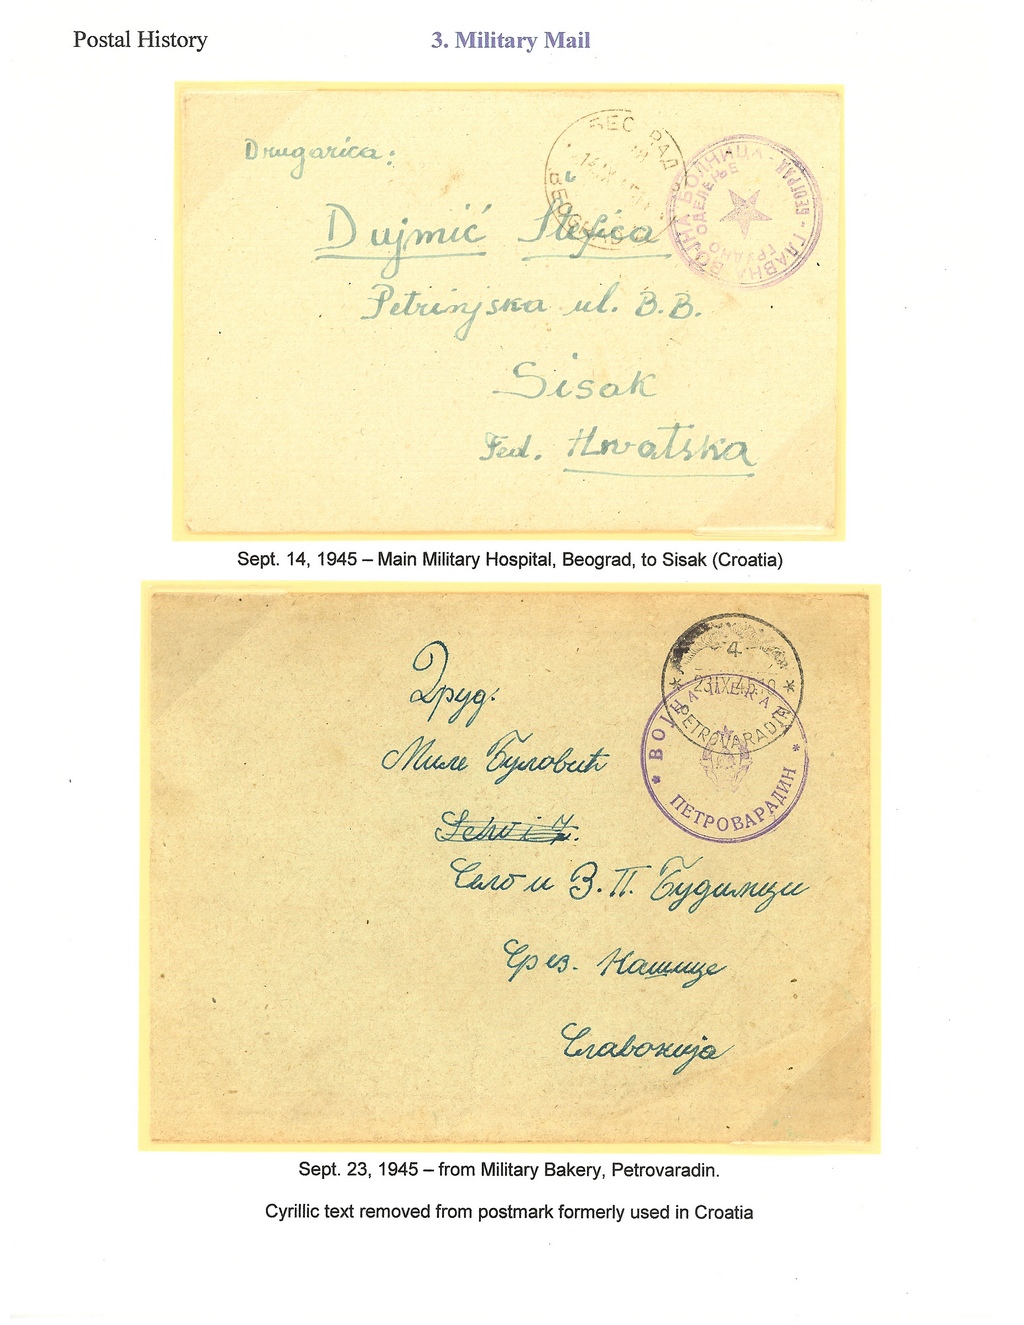 Postal History
3. Military Mail
БЕОГРАД
BEOGRAD
ГЛАВНА ВОЈНА БОЛНИЦА - БЕОГРАД -
ГРУДНО ОДЕЛЕЊЕ
Drugarica:
Dujmić Štefica
Petrinjska ul. B.B.
Sisak
Fed. Hrvatska
Sept. 14, 1945 – Main Military Hospital, Beograd, to Sisak (Croatia)
4
23 IX 45
PETROVARADIN
ВОЈНА ПЕКАРА
ПЕТРОВАРАДИН
Друг:
Миле Буловић
Село и З. П. Будимци
Срез. Нашице
Славонија
Sept. 23, 1945 – from Military Bakery, Petrovaradin.
Cyrillic text removed from postmark formerly used in Croatia